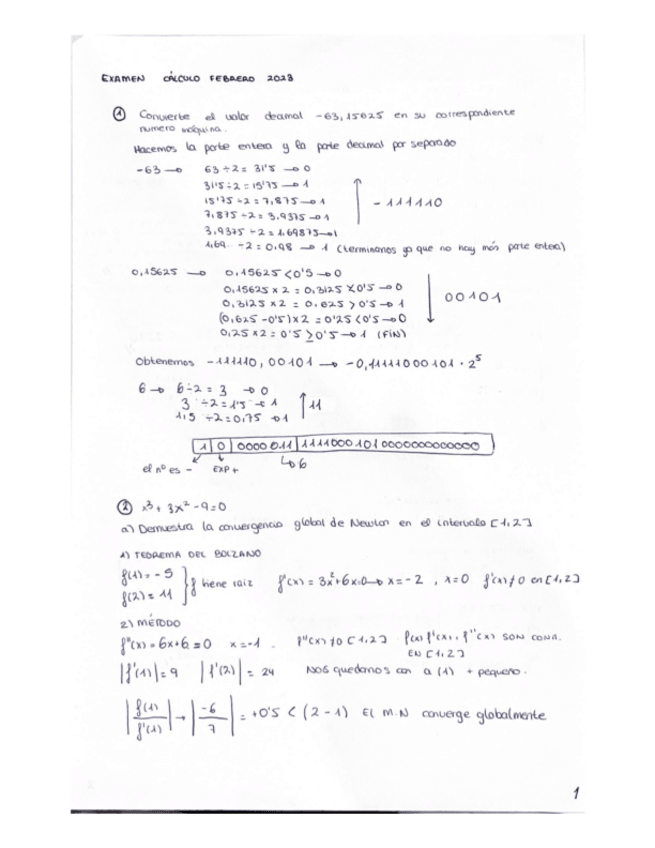 EXAMEN CÁLCULO FEBRERO 2023
① Convierte el valor decimal -63,15625 en su correspondiente
numero máquina.
Hacemos la parte entera y la parte decimal por separado
-63 → 63 ÷ 2 = 31'5 → 0
31'5 ÷ 2 = 15'75 → 1
15'75 ÷ 2 = 7,875 → 1
7,875 ÷ 2 = 3,9375 → 1
3,9375 ÷ 2 = 1,69875 → 1
1,69 ÷ 2 = 0,98 → 1 (terminamos ya que no hay más parte entera)
- 111110
0,15625 → 0,15625 < 0'5 → 0
0,15625 x 2 = 0,3125 < 0'5 → 0
0,3125 x 2 = 0,625 > 0'5 → 1
(0,625 - 0'5) x 2 = 0'25 < 0'5 → 0
0,25 x 2 = 0'5 ≥ 0'5 → 1 (FIN)
00101
Obtenemos -111110,00101 → -0,11111000101 · 2⁵
6 → 6 ÷ 2 = 3 → 0
3 ÷ 2 = 1'5 → 1
1,5 ÷ 2 = 0,75 → 1
↑ 11
1 | 0 | 0000011 | 1111000101000000000000
el nº es - EXP + ↳ 6
② x³ + 3x² - 9 = 0
a) Demuestra la convergencia global de Newton en el intervalo [1,2]
1) TEOREMA DEL BOLZANO
f(1) = -5
f(2) = 11
} f tiene raiz f'(x) = 3x² + 6x = 0 → x = -2 , x = 0 f'(x) ≠ 0 en [1,2]
2) MÉTODO
f''(x) = 6x + 6 = 0 x = -1 . f''(x) ≠ 0 [1,2] f(x) f'(x) , f''(x) SON CONT.
EN [1,2]
|f'(1)| = 9 |f'(2)| = 24 NOS quedamos con a (1) + pequeño.
|f(1)/f'(1)| → |-6/7| = +0'5 < (2 - 1) El M.N converge globalmente
1